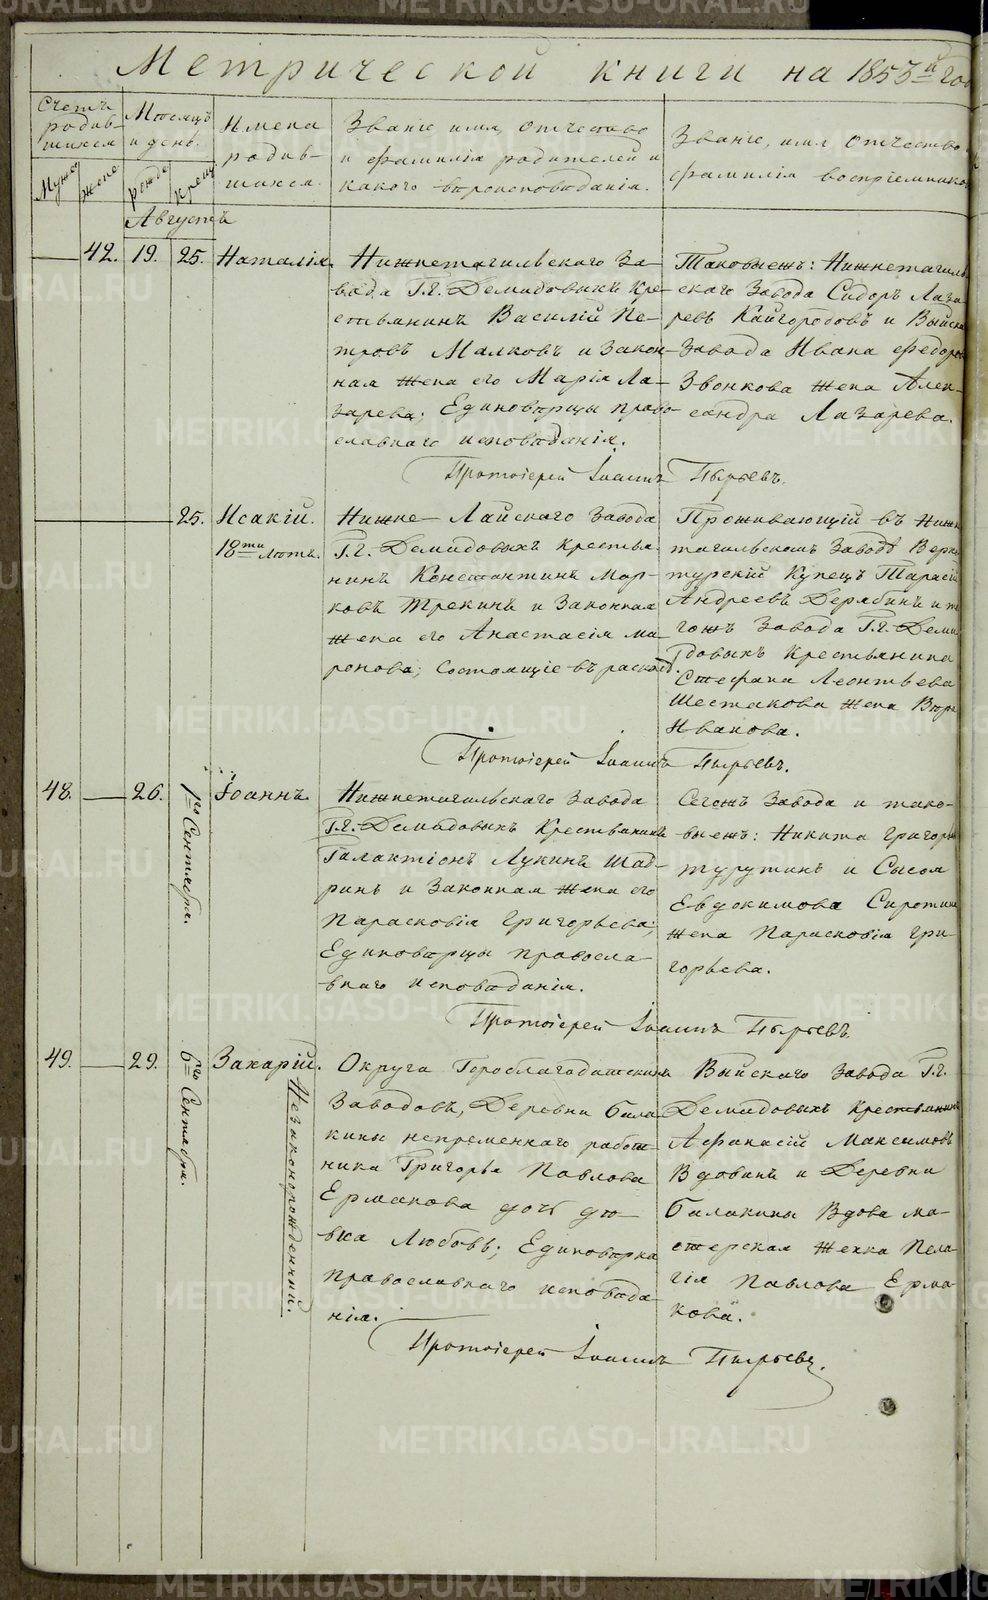 Метрической книги на 1853й год
Счетъ родив-шихся
Мужс
женс
Месяцъ и день.
рожд
крещ
Имена родив-шихся.
Званіе, имя, отчество
и фамилія родителей и
какого вероисповѣданія.
Званіе, имя, отчество
фамилія воспріемников
Августъ
42. 19. 25. Наталія.
Нижнетагильскаго За-
вода Г.г. Демидовыхъ кре-
стьянинъ Василій Пе-
тровъ Малковъ и закон-
ная жена его Марія Ла-
зарева; Единоверцы право-
славнаго исповеданія.
Таковыежъ: Нижнетагиль-
скаго Завода Сидоръ Лаза-
ревъ Кайгородовъ и Выйска
Завода Ивана Федоров
Звонкова жена Алек-
сандра Лазарева.
Протоіерей Іоаннъ Пырьевъ.
25. Исакій.
18ти лѣтъ.
Нижне-Лайскаго Завода
Г.г. Демидовыхъ крестья-
нинъ Константинъ Мар-
ковъ Трекинъ и законная
жена его Анастасія Ма-
ронова; состоящіе въ расколѣ.
Проживающій въ Нижн
тагильскомъ Заводѣ Верхо
турскій Купецъ Тарасій
Андреевъ Дерябинъ и то
гожъ Завода Г.г. Деми
довыхъ крестьянина
Стефана Леонтьева
Шестакова жена Вѣра
Иванова.
Протоіерей Іоаннъ Пырьевъ.
48. 26. 1го Сентября. Іоаннъ.
Нижнетагильскаго Завода
Г.г. Демидовыхъ крестьянинъ
Галактіонъ Лукинъ Шаб-
ринъ и законная жена его
Парасковія Григорьева;
Единоверцы правосла-
внаго исповеданія.
Сегожъ Завода и тако-
выежъ: Никита Григорьев
Турутинъ и Сысоя
Евдокимова Сиротина
жена Парасковія Гри-
горьева.
Протоіерей Іоаннъ Пырьевъ.
49. 29. 6го Сентября. Захарій.
Незаконорожденный.
Округа Гороблагодатскихъ
Заводовъ, Деревни Бала-
киной непременнаго работ-
ника Григорья Павлова
Ермакова дочь дѣ-
вка Любовь; Единоверка
православнаго исповеда-
нія.
Выйскаго Завода Г.г.
Демидовыхъ крестьянинъ
Афанасій Максимовъ
Вдовинъ и Деревни
Балакины Вдова ма-
стерская женка Пела-
гія Павлова Ерма-
кова.
Протоіерей Іоаннъ Пырьевъ.
METRIKI.GASO-URAL.RU